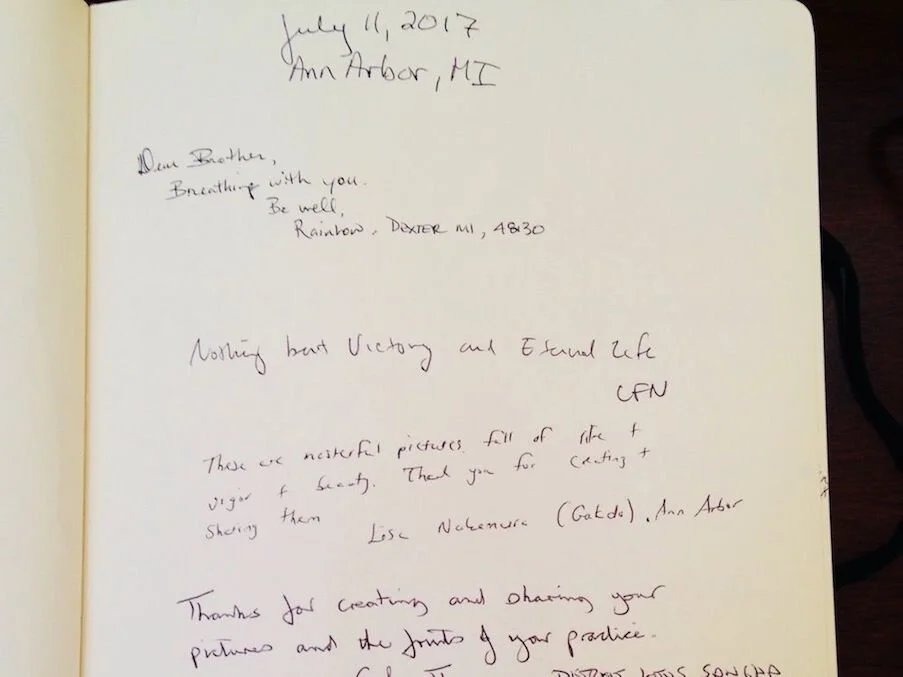 July 11, 2017
Ann Arbor, MI
Dear Brother,
Breathing with you.
Be well,
Rainbow, DEXTER MI, 48130
Nothing but Victory and Eternal Life
CFN
These are masterful pictures, full of life +
vigor + beauty. Thank you for creating +
sharing them
Lisa Nakamura (Gakdo), Ann Arbor
Thanks for creating and sharing your
pictures and the fruits of your practice.
LOTUS SANGHA